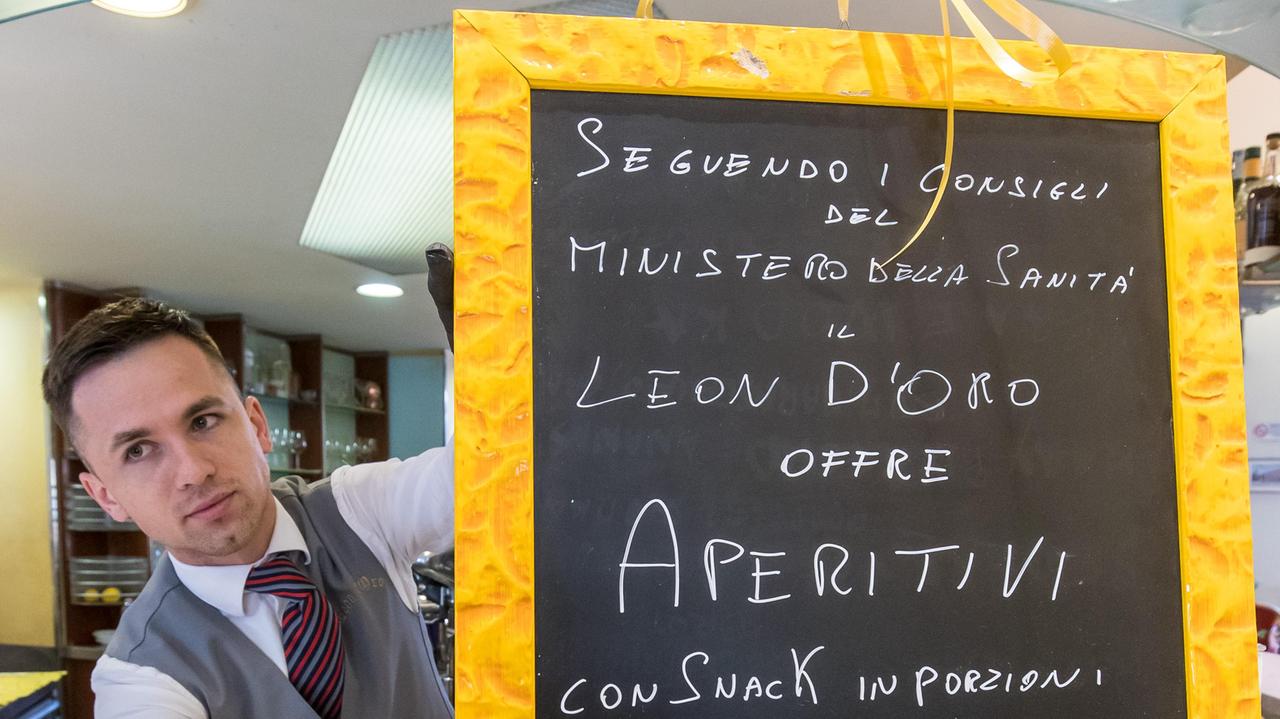 SEGUENDO I CONSIGLI
DEL
MINISTERO DELLA SANITÀ
IL
LEON D'ORO
OFFRE
APERITIVI
CON SNACK IN PORZIONI